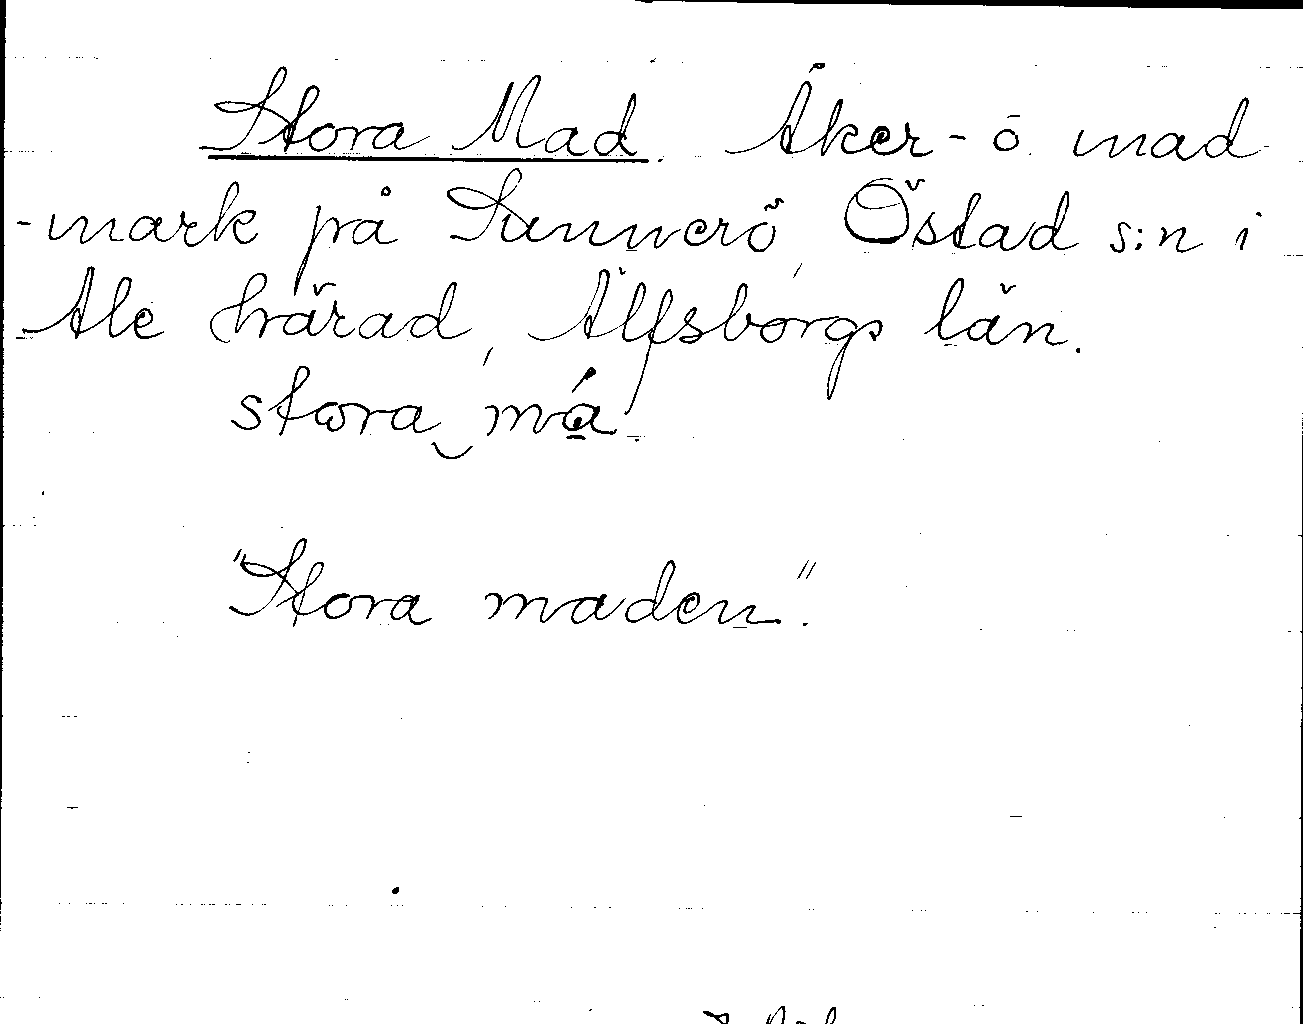 Stora Mad. Åker- o. mad
-mark på Sunnerö, Östad s:n i
Ale härad, Älfsborgs län.
stora‿má.
"Stora maden".